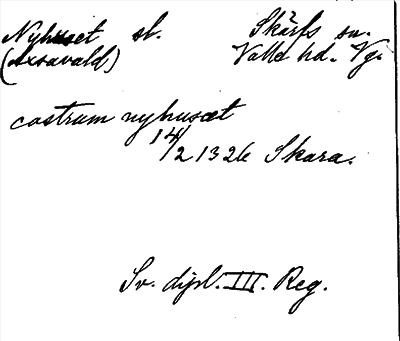 Nyhuset sl. Skärfs sn.
(Axsavald) Valle hd. Vg.
castrum nyhusæt
14/2 1326 Skara.
Sv. dipl. III. Reg.